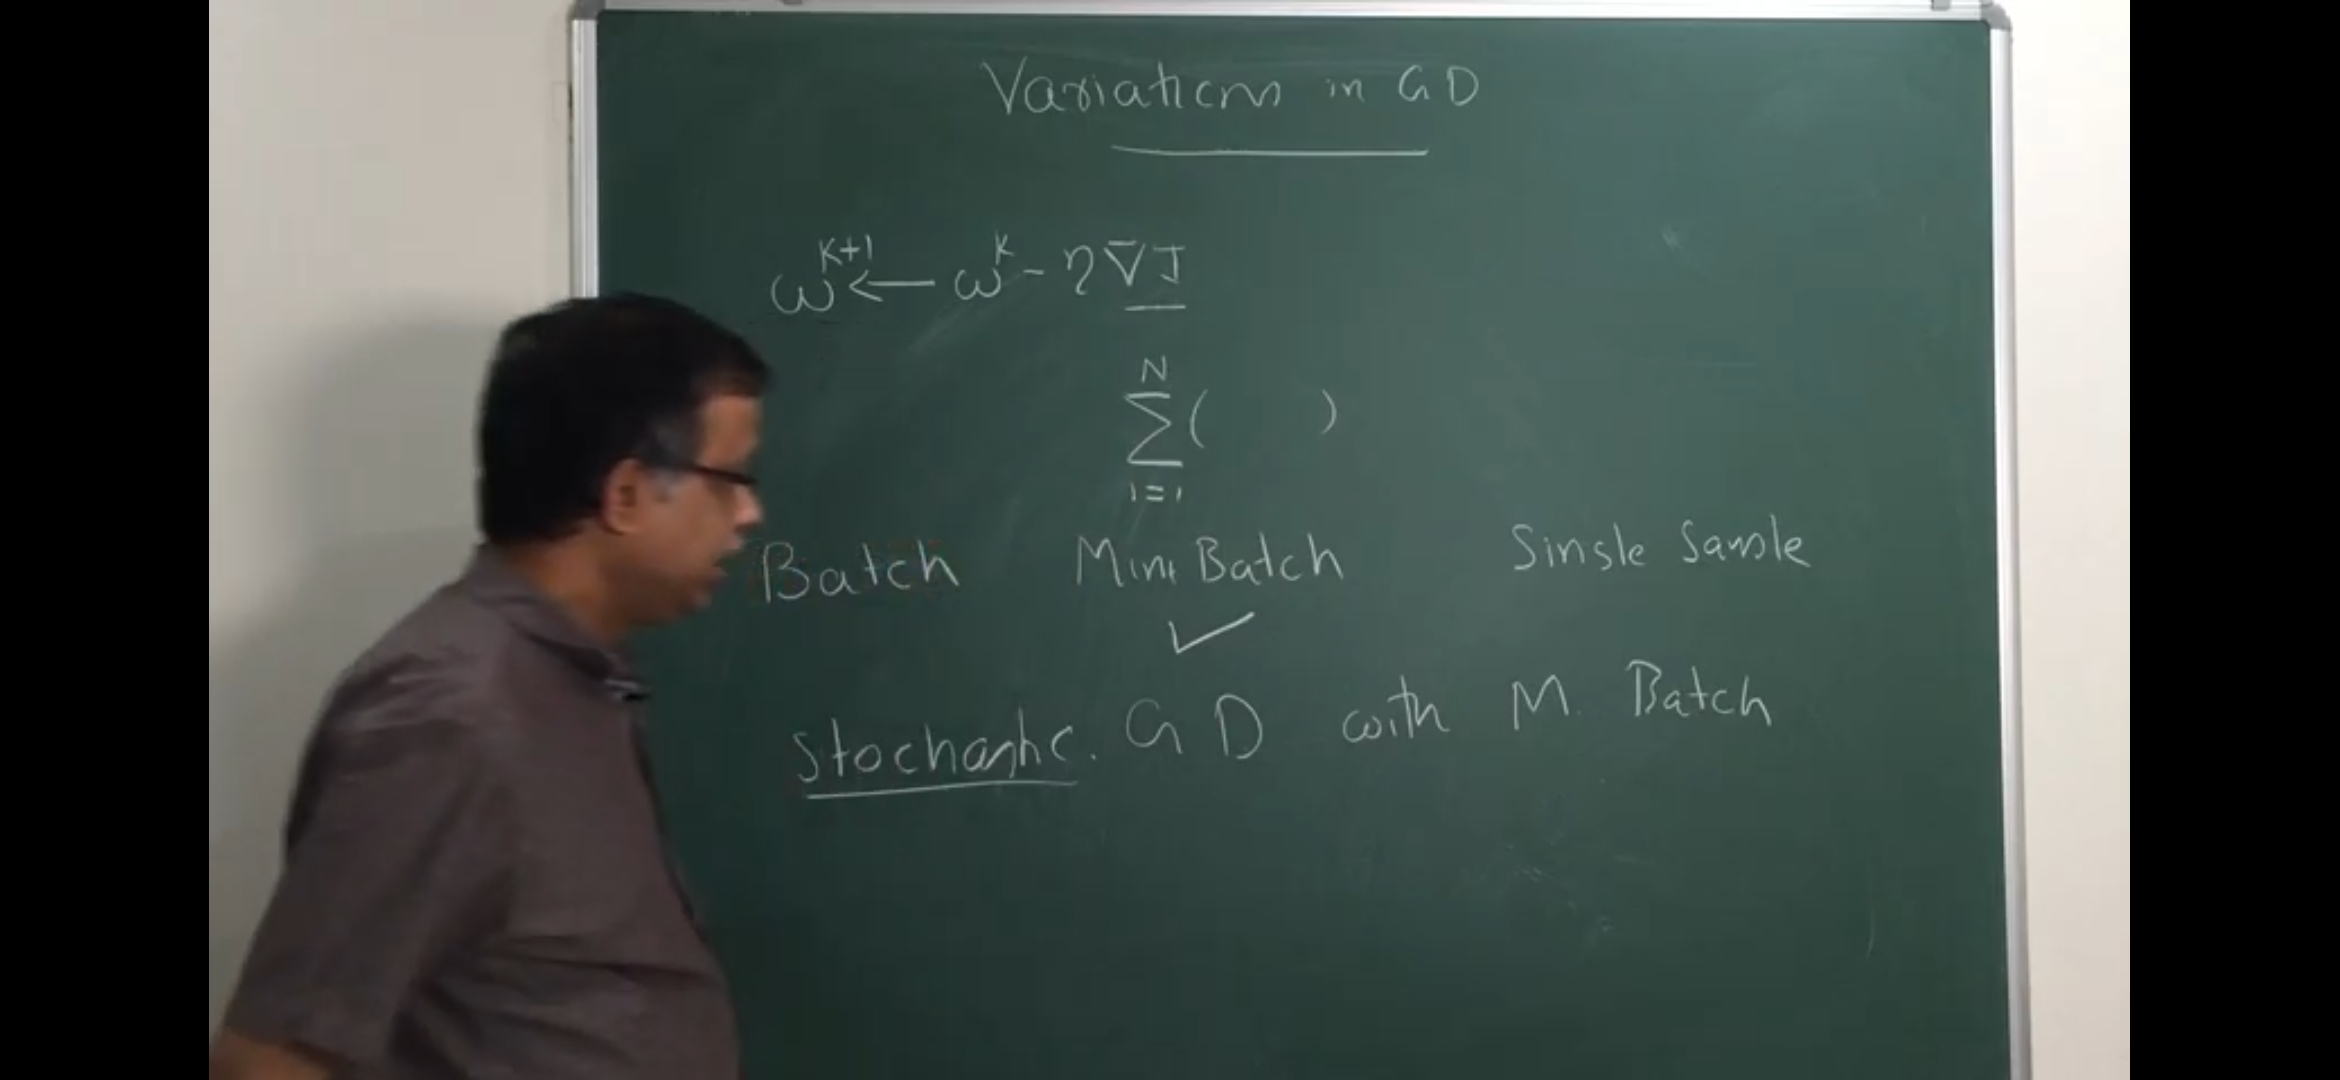 Variations in GD
ω^{K+1} ← ω^K - η∇J
N
∑ ( )
i=1
Batch Mini Batch Single Sample
Stochastic. GD with M. Batch